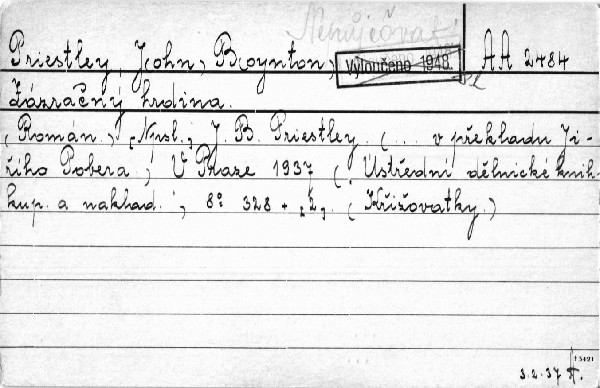 Nepůjčovat
Priestley, J(ohn) B(oynton)
Vyloučeno 1948.
AA 2484
Zázračný hrdina.
(Román.) (Naps.) J. B. Priestley. (... v překladu Ji-
řího Pobera.) V Praze 1937 (, Ústřední dělnické knih-
kup. a naklad.), 8° 328 + (2) (Křižovatky.)
13421
3.2.37